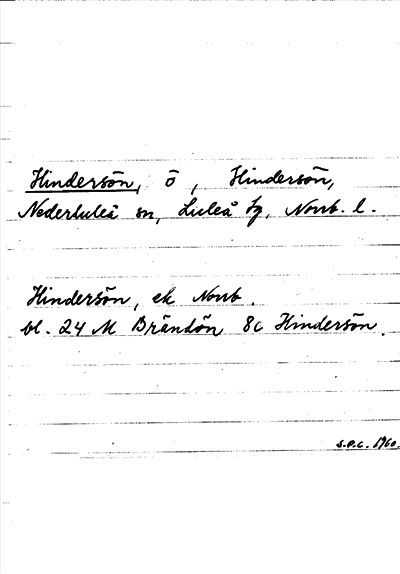 Hindersön, ö, Hindersön,
Nederluleå sn, Luleå tg, Norrb. l.
Hindersön, ek Norrb.
bl. 24 M Brändön 8c Hindersön.
S.O.C. 1960.